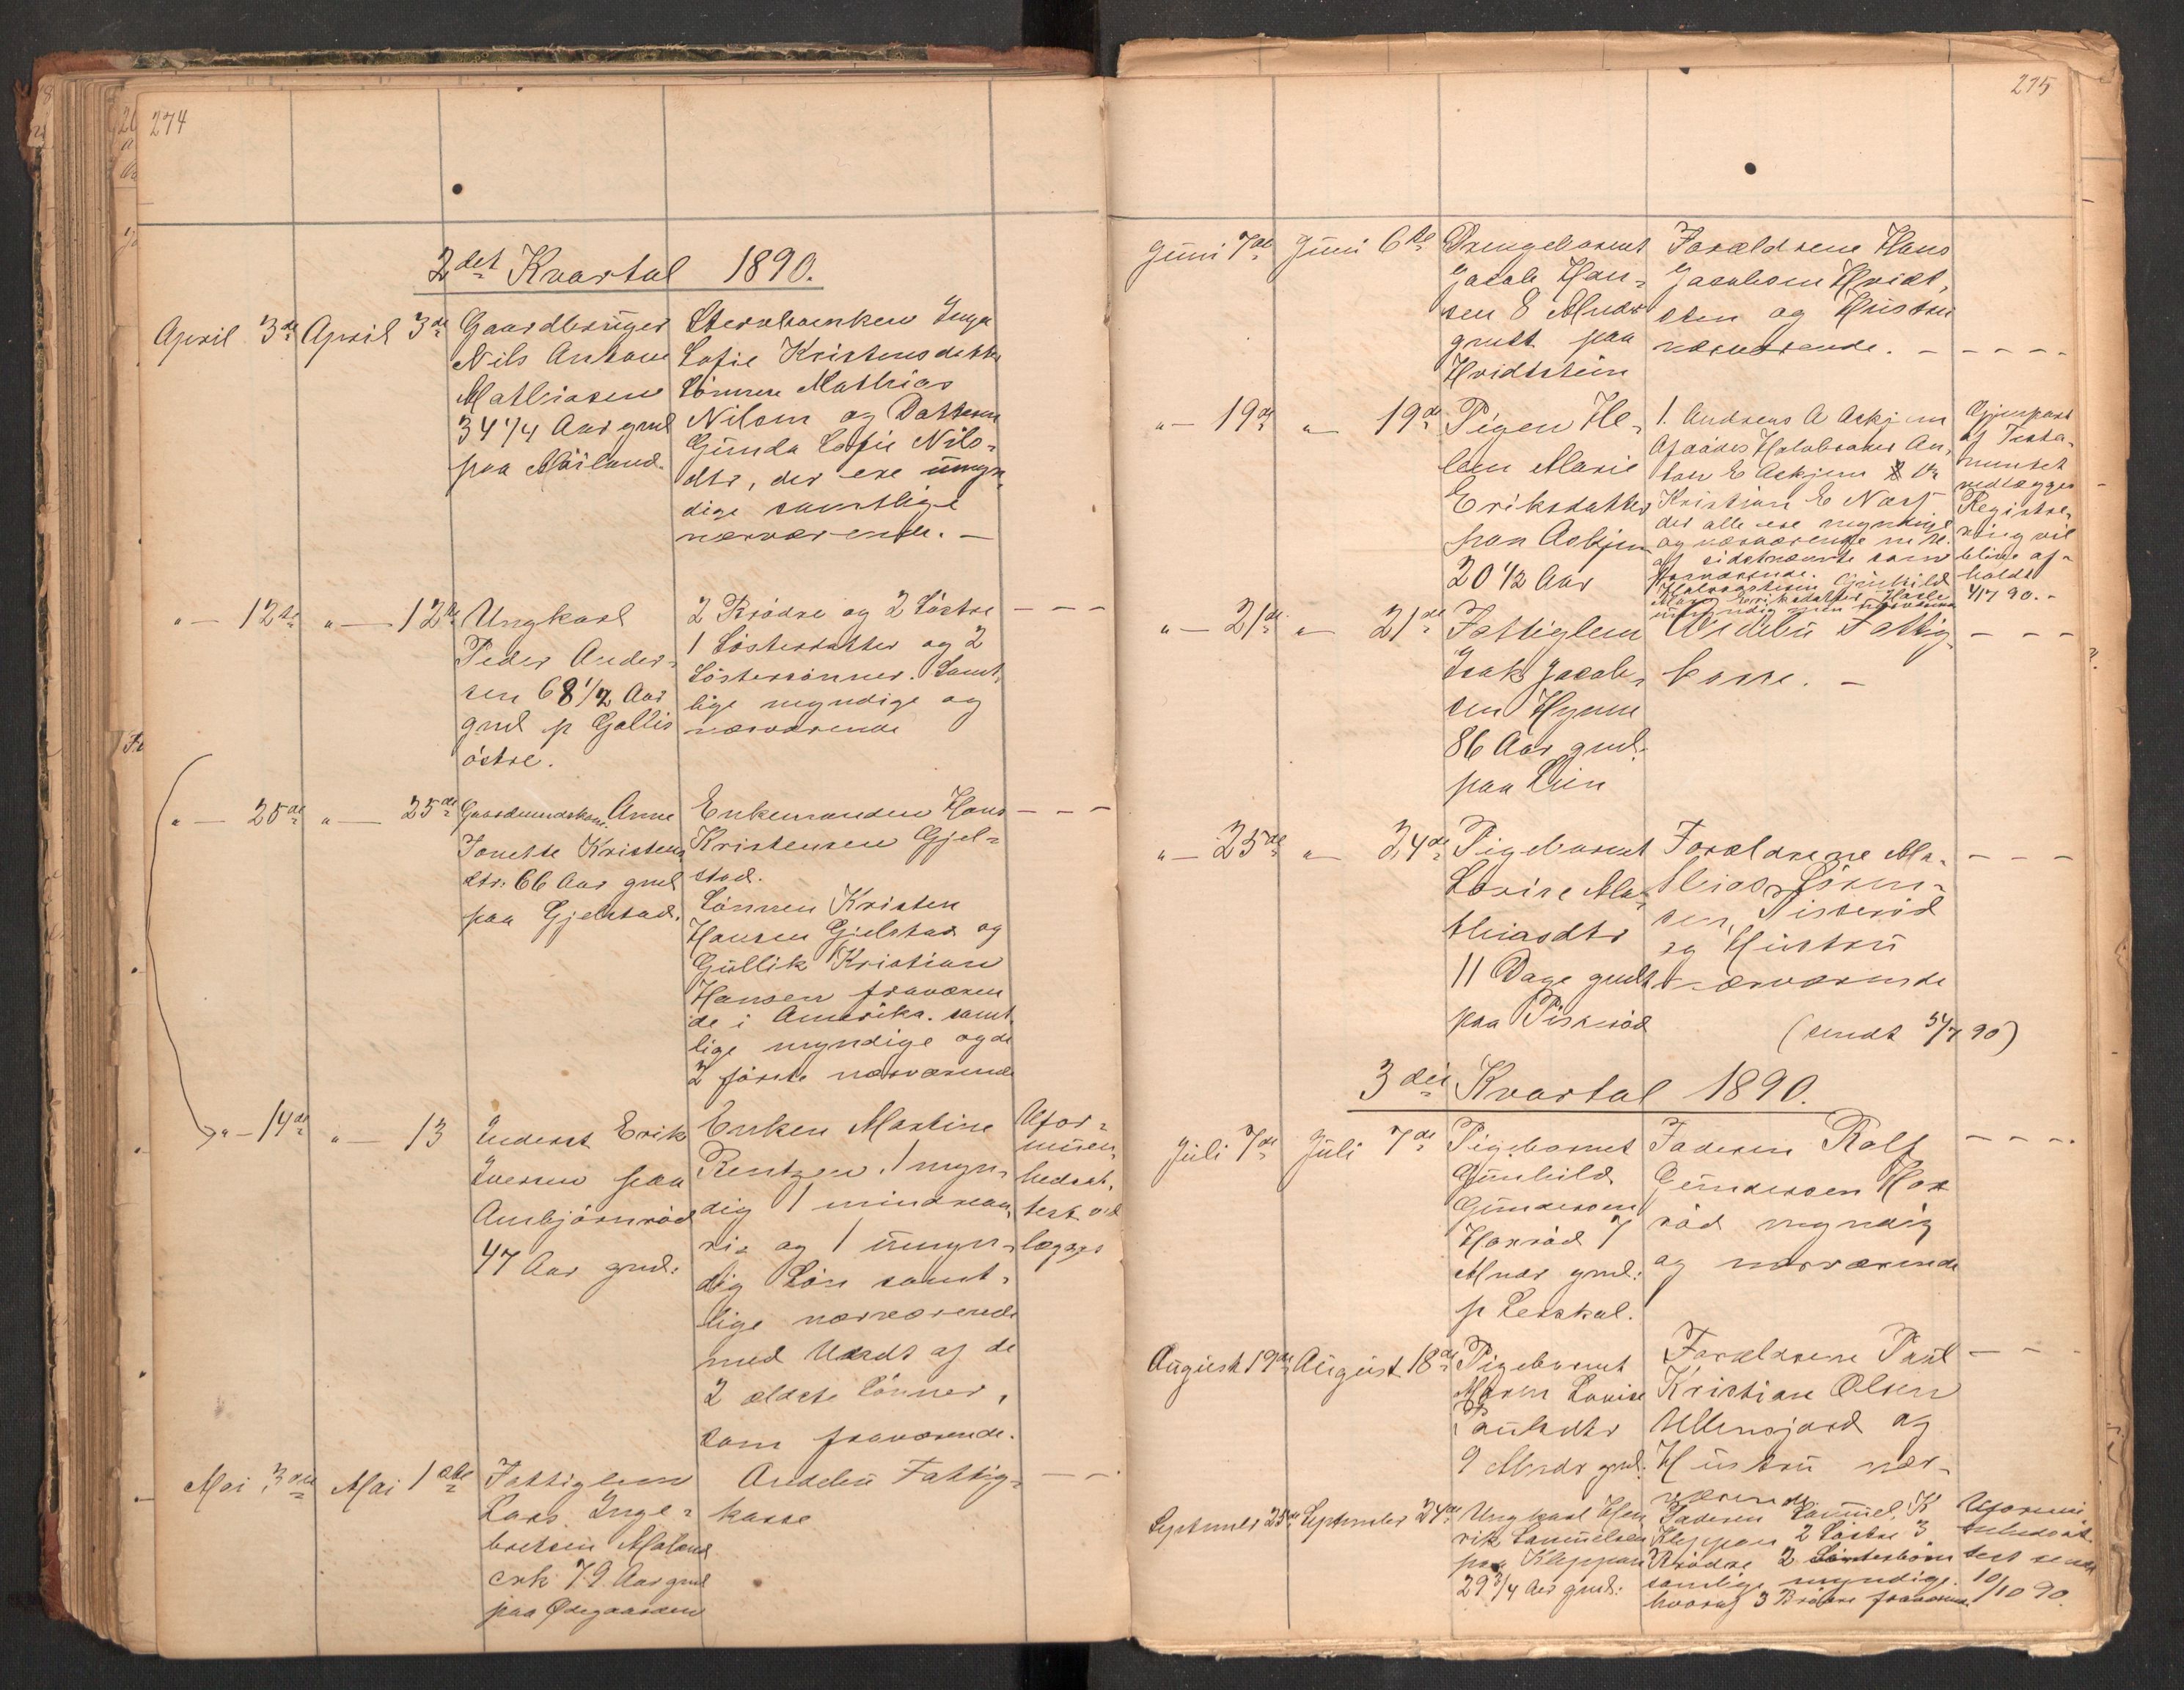 274
2det Kvartal 1890.
April 3de April 3de Gaardbruger
Nils Anton
Mathiasen
34 1/4 Aar gml
paa Möiland.
Stervboenken Inga
Sofie Kristensdatter
Sönnen Mathias
Nilsen og Datteren
Gunda Sofie Nils-
dtr, der ere umyn-
dige samtlige
nærværende. —
" — 12te " — 12te Ungkarl
Peder Ander-
sen 68 1/2 Aar
gml p Gallis
östre.
2 Brödre og 2 Söstre — — —
1 Sösterdatter og 2
Söstersönner. Samt-
lige myndige og
nærværende
" — 25de " — 25de Gaardmandskone Anne
Jonette Kristens
dtr. 66 Aar gml
paa Gjelstad.
Enkemanden Hans — — —
Kristensen Gjel-
stad.
Sönnen Kristen
Hansen Gjelstad og
Gullik Kristian
Hansen fraværen
de i Amerika. samt
lige myndige og de
2 förste nærværende
" — 14de " — 13 Inderst Erik
Iversen paa
Anbjörnröd
47 Aar gml.
Enken Martine
Rentzen. 1 myn-
dig 1 mindreaa-
rig og 1 umyn-
dig Sön samt-
lige nærværende
med Undt af de
2 ældste Sönner,
som fraværende.
Ufor-
muen-
hedsat-
test ved
lægges
Mai 3die Mai 1ste Fattiglem
Lars Inge-
bretsen Moland
erk 79 Aar gml
paa Ødegaarden
Andebu Fattig- — —
kasse
275
Juni 7de Juni 6te Drengebarnet
Jacob Han-
sen 8 Mndr
gmlt paa
Hvidtstein
Forældrene Hans
Jacobsen Hvidt-
sten og Hustru
nærværende. — — — — —
" — 19de " — 19de Pigen He-
len Marie
Eriksdatter
paa Askjem
20 1/2 Aar
1. Andreas A Askjem
Afdödes Halvbroder An-
ton E Askjem
Kristian E Næs
der alle ere myndige
og nærværende
af sidstnævnte som
fraværende.
Gjenpart
af Testa-
mentet
vedlægges
Registre-
ring vil
blive af-
holdt
4/7 90. -
" — 21de " — 21de Fattiglem
Isak Jacob-
sen Hynne
86 Aar gml.
paa Lien
Andebu Fattig- — — —
kasse. —
" — 25de " — 24de Pigebarnet
Lovise Ma-
thiasdtr
11 Dage gmlt
paa Piskeröd
Forældrene Ma- — — —
thias Sören-
sen, Piskeröd
og Hustru
nærværende
(sendt 5/7 90)
3die Kvartal 1890.
Juli 7de Juli 7de Pigebarnet
Gunhild
Gundersen
Haxröd 7
Mndr gml.
p Leeskal.
Faderen Rolf — — — .
Gundersen Hax
röd myndig
og nærværende
August 19de August 18de Pigebarnet
Maren Lovise
Paulsdtr
9 Mndr gml.
Forældrene Paul — — —
Kristian Olsen
Ullensjord og
Hustru nær-
værende
September 25de September 24de Ungkarl Hen
rik Samuelsen
paa Kleppan
29 3/4 Aar gml.
Faderen Samuel K
Kleppan 2 Söstre 3
Brödre 2 Sösterbörn
samtlige myndige.
hvoraf 3 Brödre fraværende.
Uformu
enhedsat
test sendt
10/10 90.